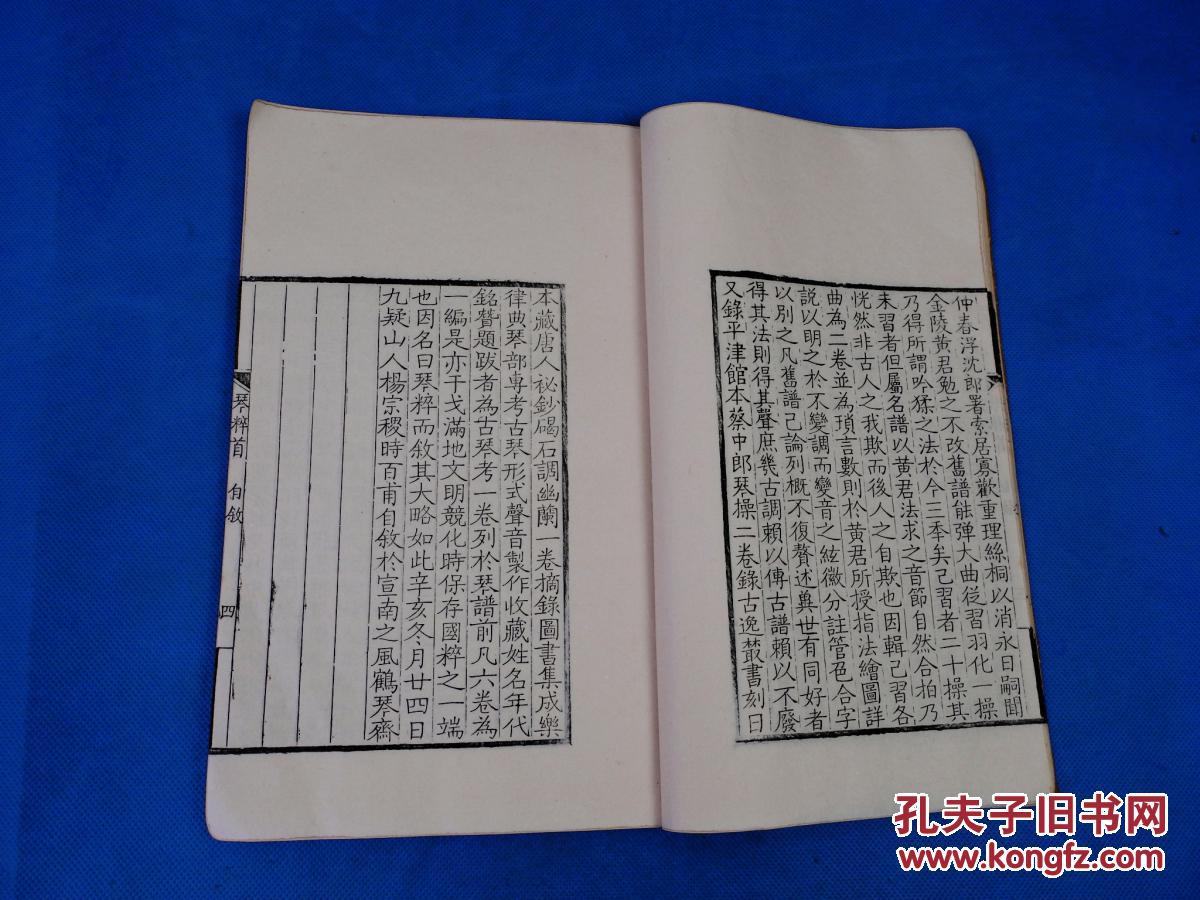 仲春浮沈郎署索居寡歡重理絲桐以消永日嗣聞
金陵黃君勉之不改舊譜能彈大曲從習羽化一操
乃得所謂吟猱之法於今三季矣已習者二十操其
未習者但屬名譜以黃君法求之音節自然合拍乃
恍然非古人之我欺而後人之自欺也因輯己習各
曲為二卷並為瑣言數則於黃君所授指法繪圖詳
說以明之於不變調而變音之絃徽分註管色合字
以別之凡舊譜已論列概不復贅述異世有同好者
得其法則得其聲庶幾古調賴以傳古譜賴以不廢
又錄平津館本蔡中郎琴操二卷錄古逸叢書刻日
本藏唐人祕鈔碣石調幽蘭一卷摘錄圖書集成樂
律典琴部專考古琴形式聲音製作收藏姓名年代
銘贊題跋者為古琴考一卷列於琴譜前凡六卷為
一編是亦干戈滿地文明競化時保存國粹之一端
也因名曰琴粹而敘其大略如此辛亥冬月廿四日
九疑山人楊宗稷時百甫自敘於宣南之風鶴琴齋
琴粹首 自敘 四
孔夫子旧书网
www.kongfz.com